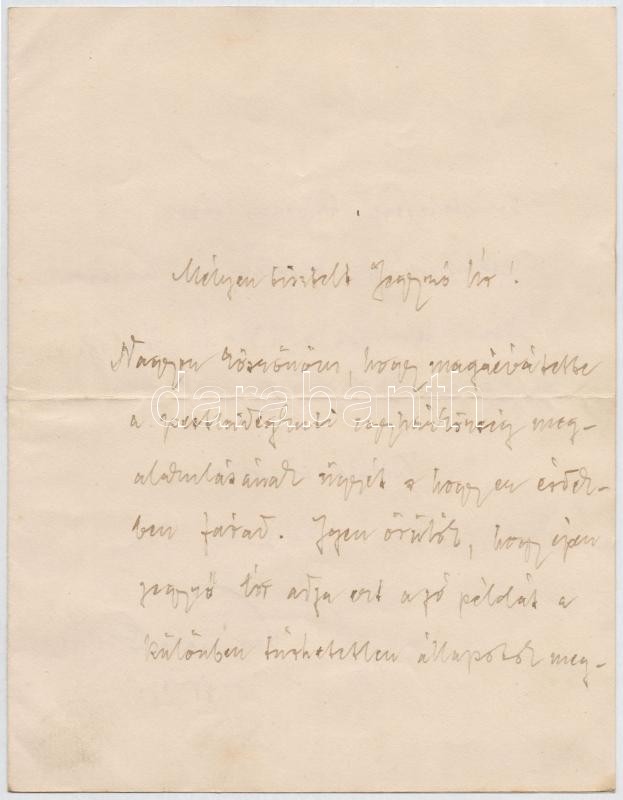 Mélyen tisztelt Jegyző Úr!
Nagyon köszönöm, hogy magáévá tette
a pesthidegkuti egyházközség meg-
alakulásának ügyét s hogy ez érdek-
ben fárad. Igen örülök, hogy épen
jegyző úr adja ezt a jó példát a
különben tűrhetetlen állapotok meg-
darabanth